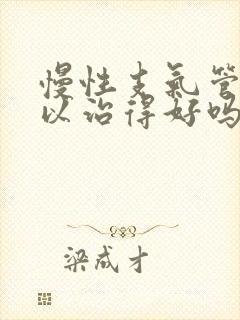 慢性支气管
以治得好吗
梁成才